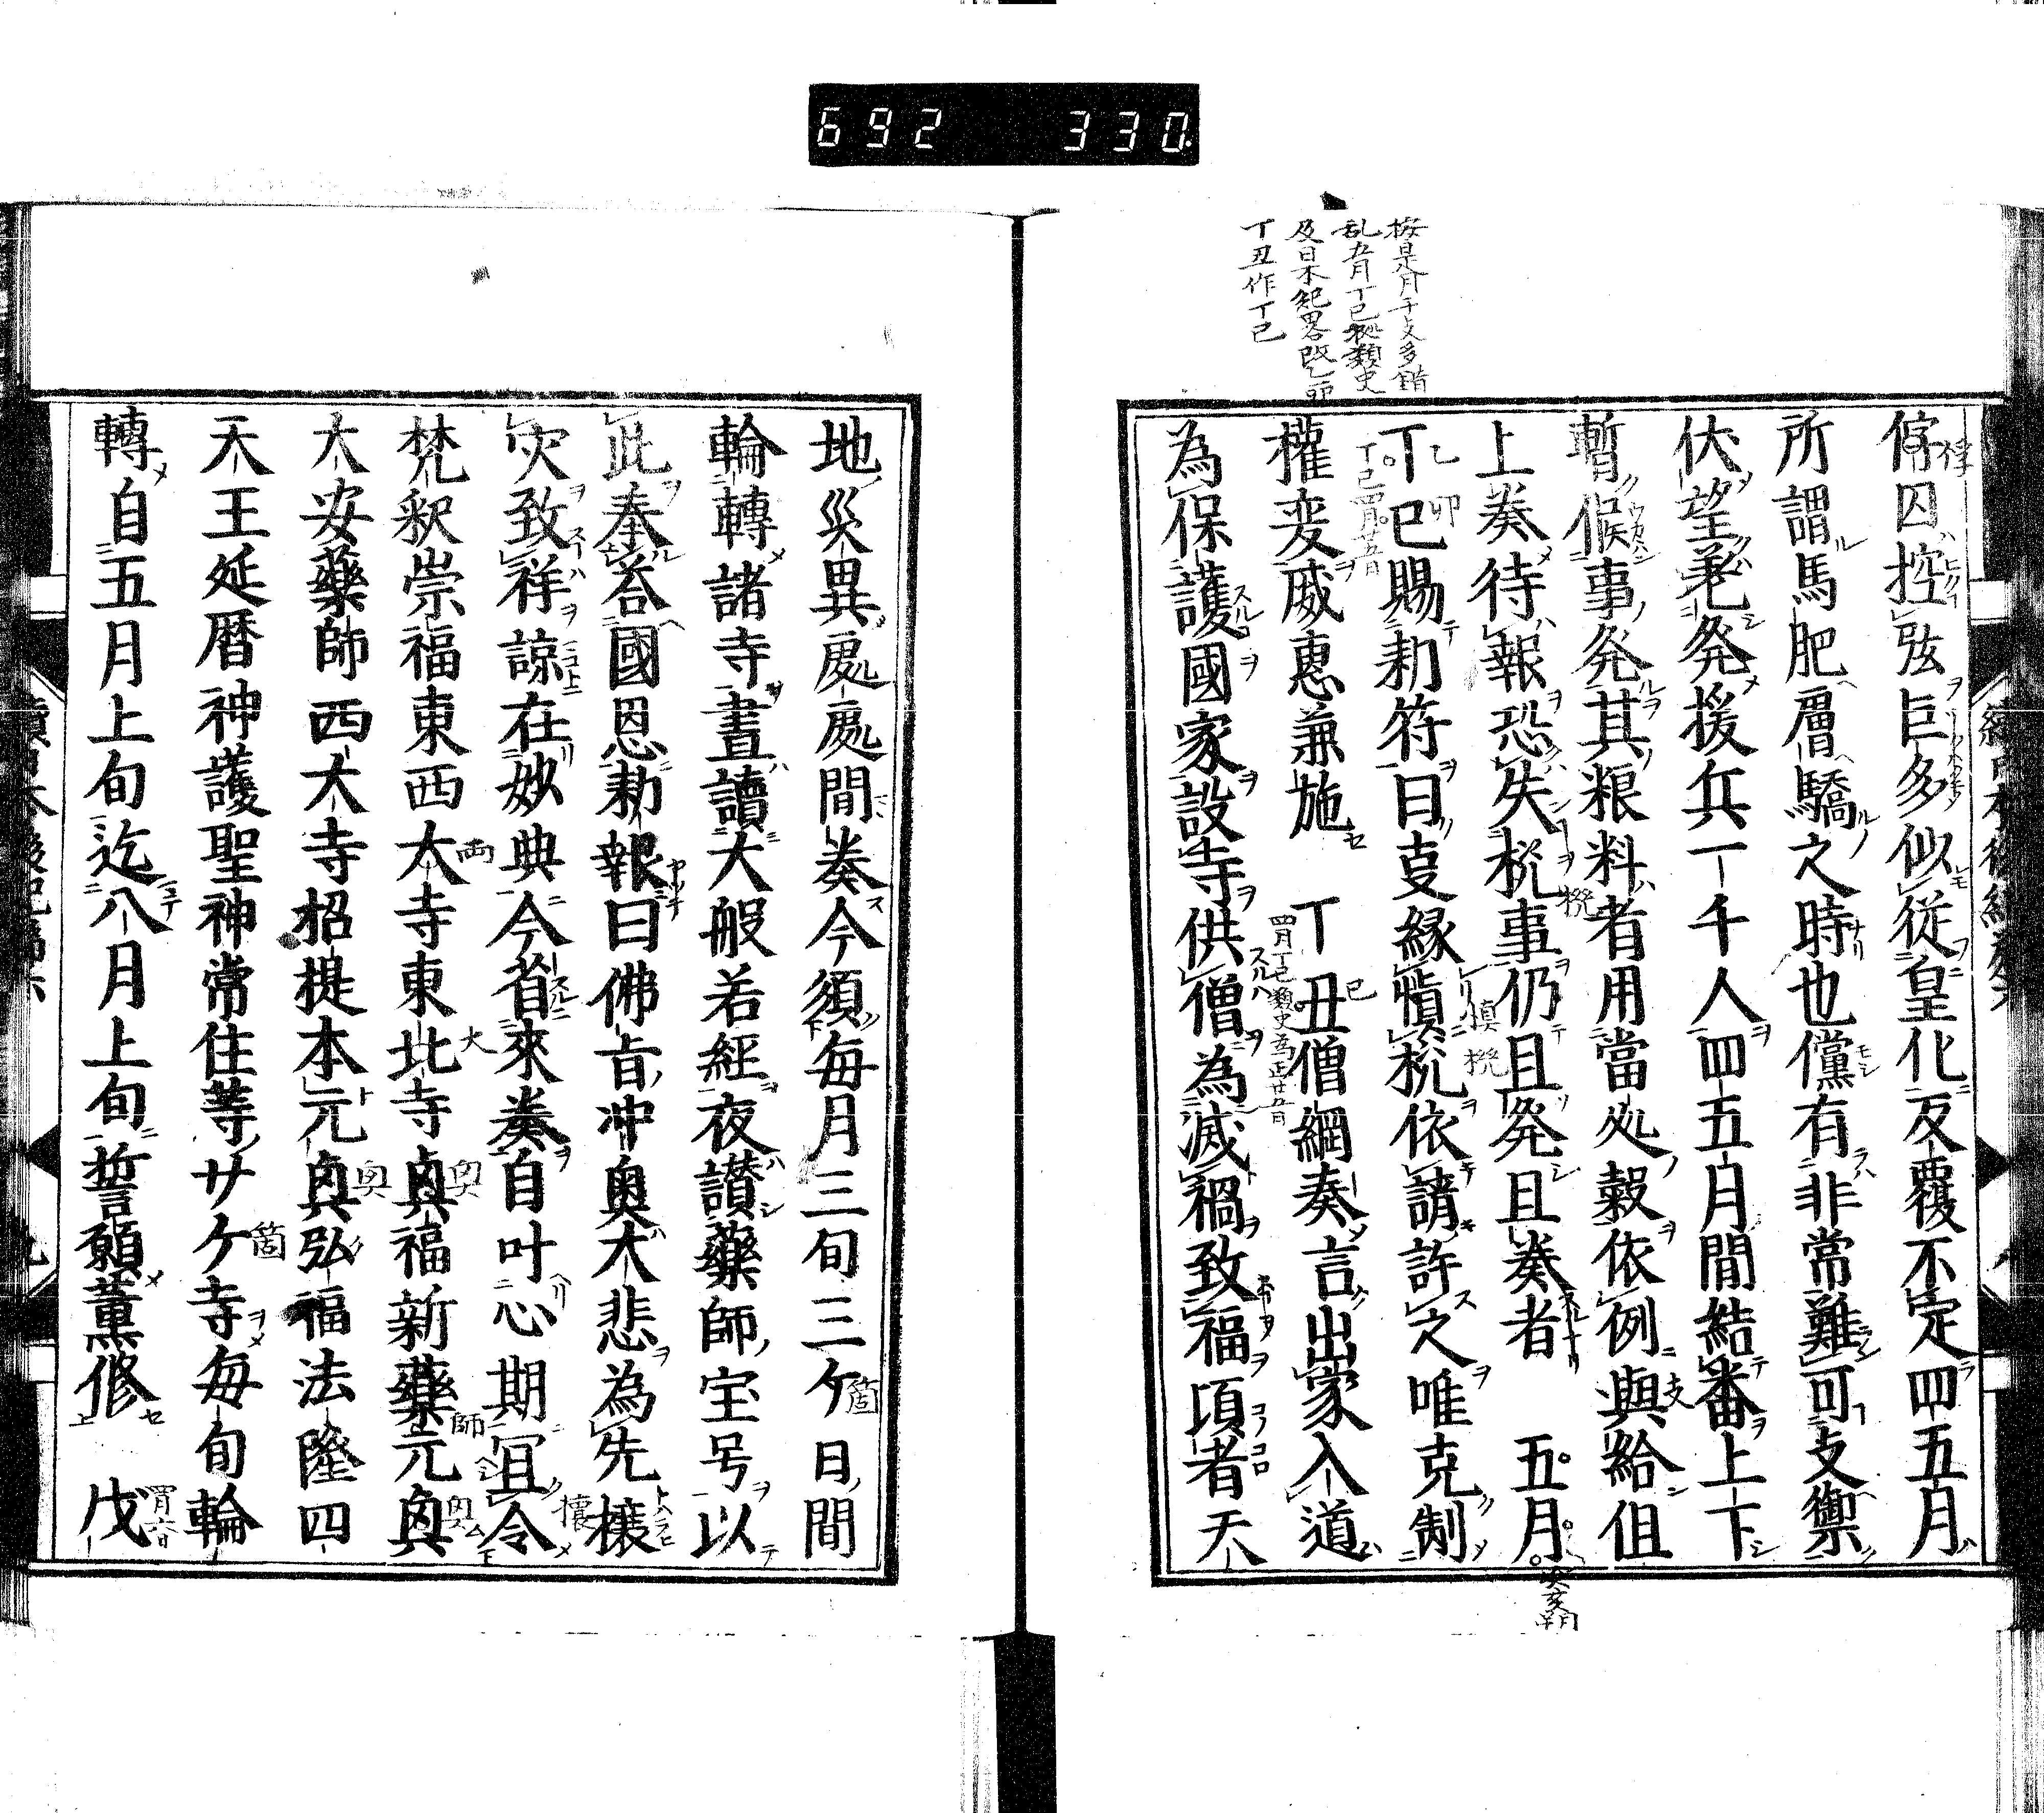 692 330
按是月干支多錯
乱五月丁巳挍類史
及日本紀畧改乙卯
丁丑作丁巳
停囚控弦巨多似從皇化反覆不定四五月
所謂馬肥虜驕之時也儻有非常難可支禦
伏望差発援兵一千人四五月間結番上下
暫候事発其粮料者有用當処穀依例與給但
上奏待報恐失機事仍且発且奏者 五月
丁巳賜勅符曰夷縁慎機依請許之唯克制
權変威恵兼施 丁丑僧綱奏言出家入道
為保護國家設寺供僧為滅禍致福頃者天
地災異處處間奏今須毎月三旬三ケ日間
輪轉諸寺晝讀大般若經夜讃藥師宝号以
此奉荅國恩勅報曰佛旨冲奧大悲為先攘
灾致祥諒在妙典今省來奏自叶心期冝令
梵釈崇福東西大寺東北寺興福新藥元興
大安藥師西大寺招提本元興弘福法隆四
天王延暦神護聖神常住等廿ケ寺毎旬輪
轉自五月上旬迄八月上旬誓願薫修 戊